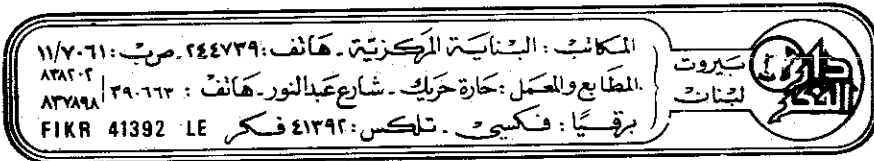 دار الفكر
بيروت
لبنان
المكاتب : البناية المركزية - هاتف : ٢٤٤٧٣٩ - ص ب : ١١/٧٠٦١
المطابع والمعمل : حارة حريك - شارع عبدالنور - هاتف : ٣٩٠٦٦٣ / ٨٣٨٢٠٢ ٨٣٧٨٩٨
برقيًا : فكسي - تلكس : ٤١٣٩٢ فكر FIKR 41392 LE